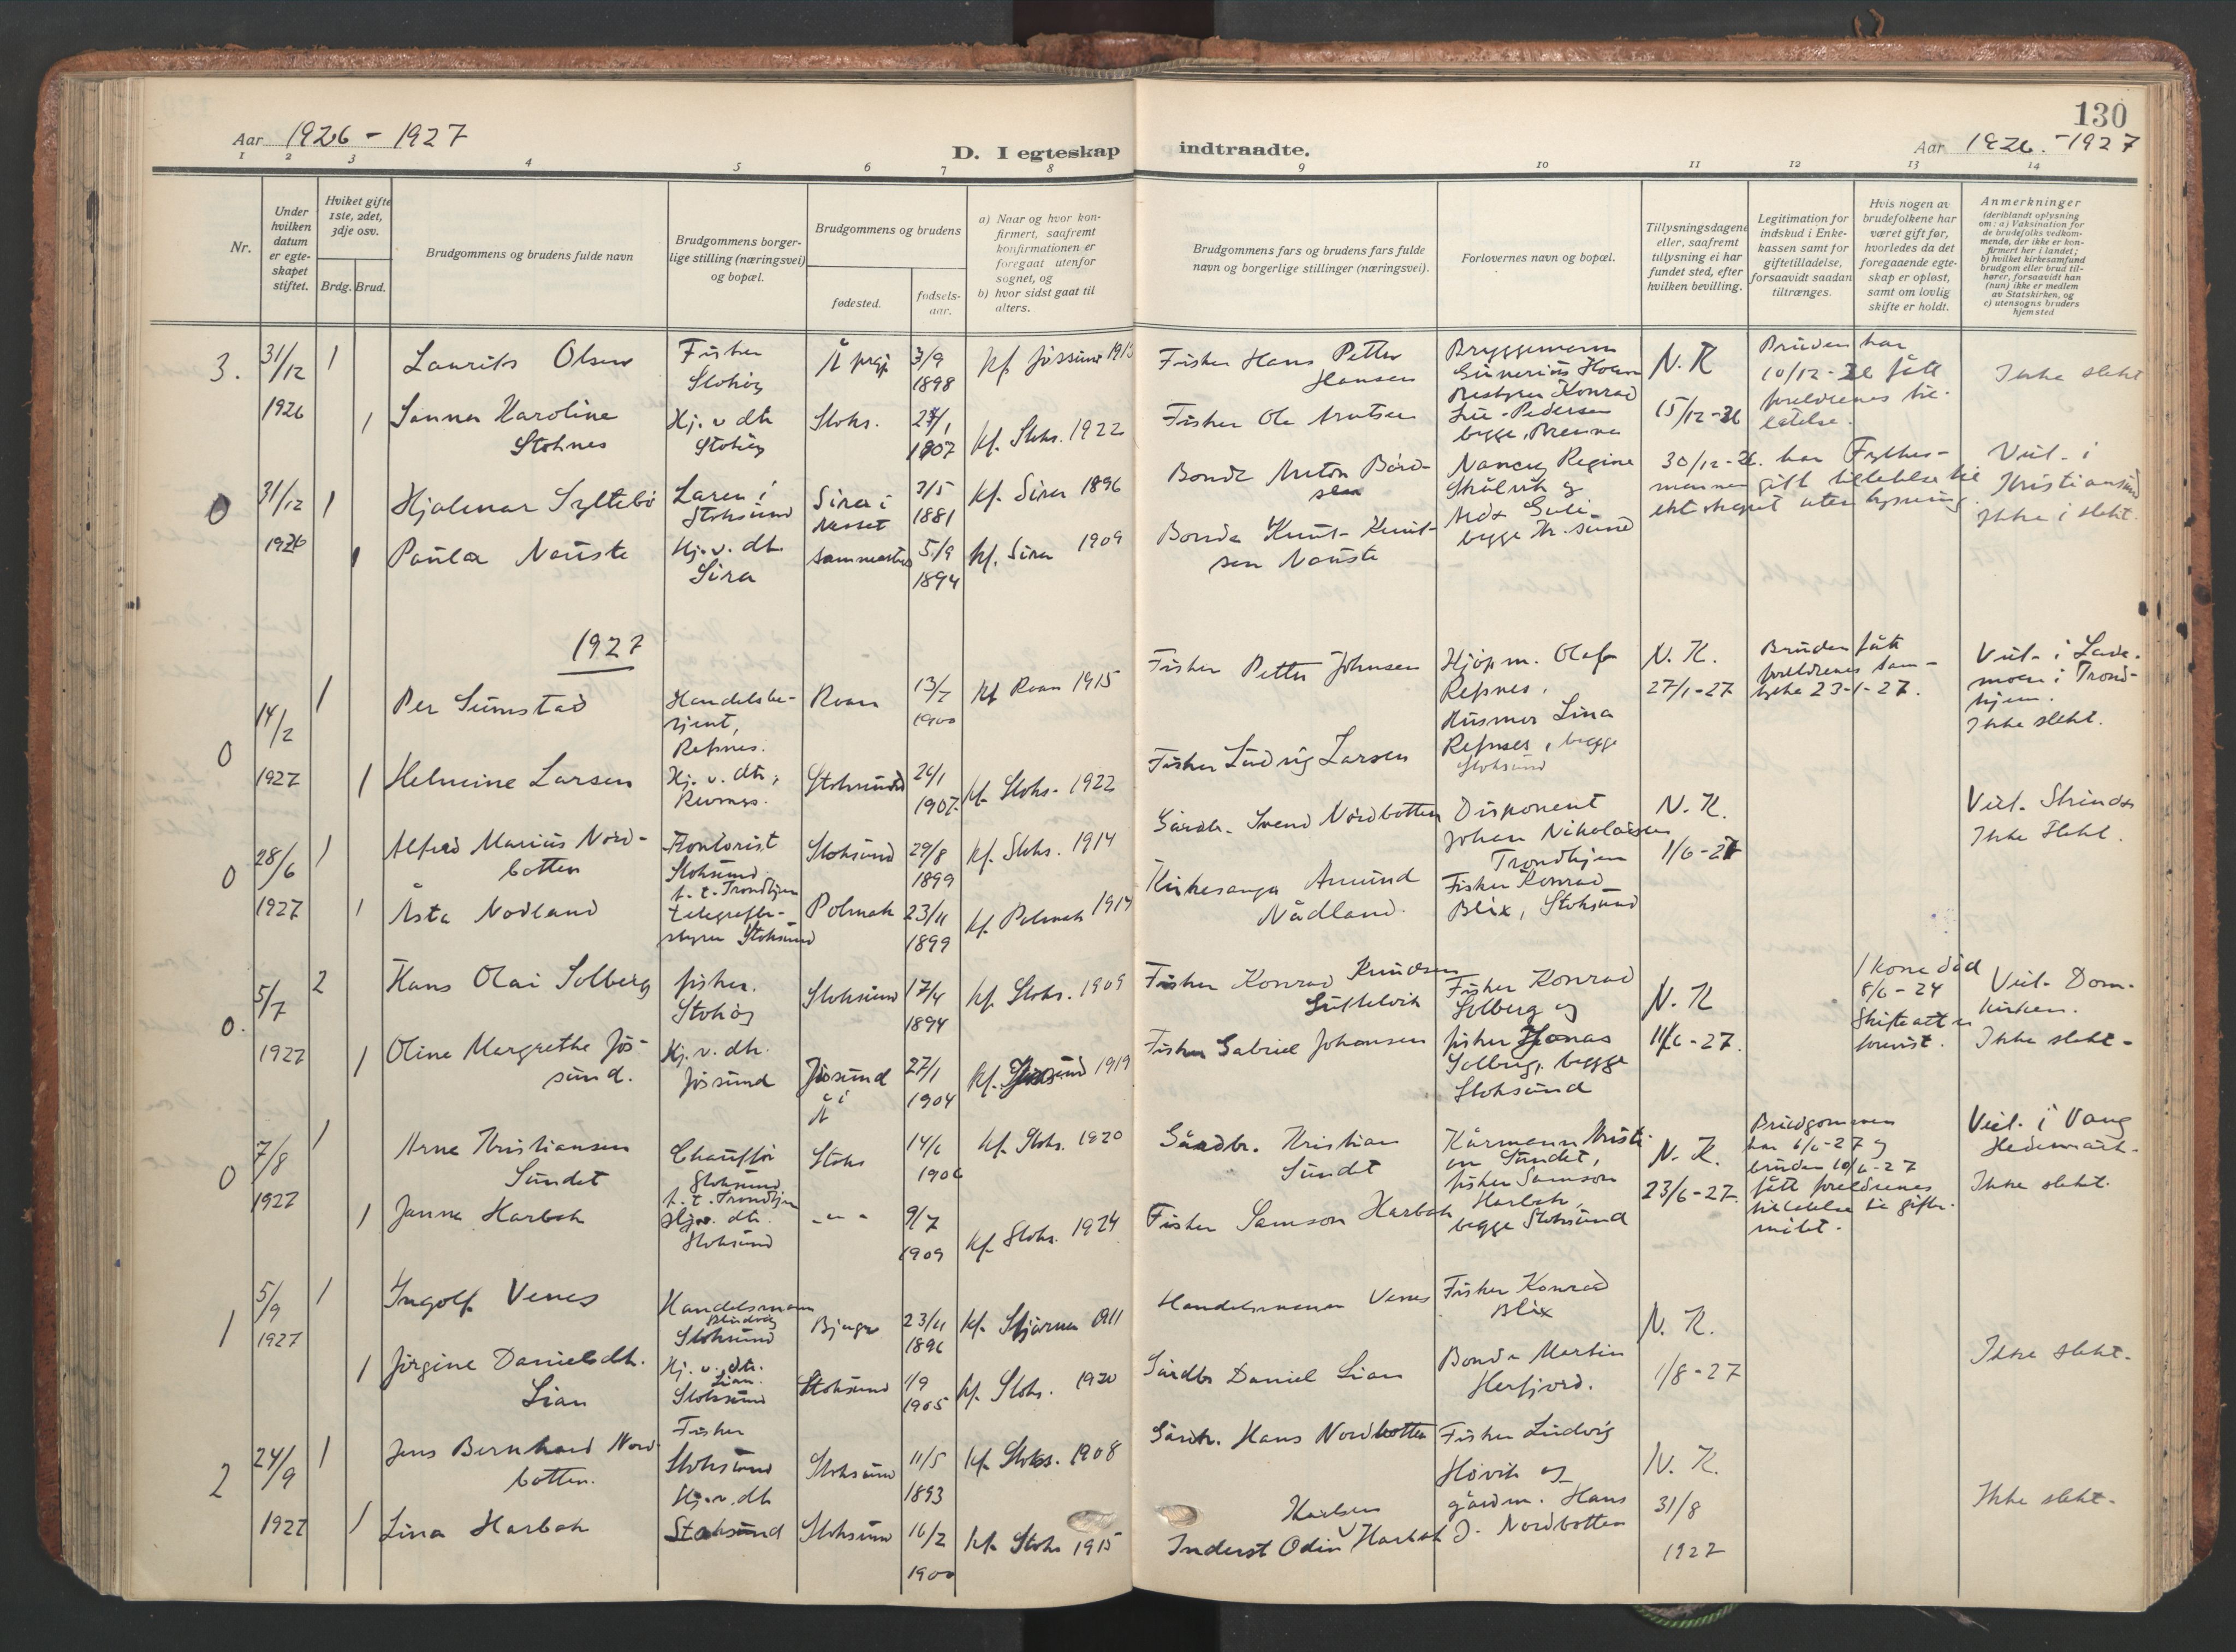 130
Aar 1926 - 1927
D. I egteskap indtraadte.
Aar 1926. - 1927
1 2 3 4 5 6 7 8 9 10 11 12 13 14
Nr.
Under hvilken datum er egteskapet stiftet.
Hviket gifte 1ste, 2det, 3dje osv.
Brdg. Brud.
Brudgommens og brudens fulde navn
Brudgommens borgerlige stilling (næringsvei) og bopæl.
Brudgommens og brudens
fødested.
fødselsaar.
a) Naar og hvor konfirmert, saafremt konfirmationen er foregaat utenfor sognet, og
b) hvor sidst gaat til alters.
Brudgommens fars og brudens fars fulde navn og borgerlige stillinger (næringsvei).
Forlovernes navn og bopæl.
Tillysningsdagene eller, saafremt tillysning ei har fundet sted, efter hvilken bevilling.
Legitimation for indskud i Enkekassen samt for giftetilladelse, forsaavidt saadan tiltrænges.
Hvis nogen av brudefolkene har været gift før, hvorledes da det foregaaende egteskap er opløst, samt om lovlig skifte er holdt.
Anmerkninger
(deriblandt oplysning om: a) Vaksination for de brudefolks vedkommende, der ikke er konfirmert her i landet; b) hvilket kirkesamfund brudgom eller brud tilhører, forsaavidt han (hun) ikke er medlem av Statskirken, og c) utensogns bruders hjemsted
3. 31/12 1926 1 Laurits Olsen
Fisker Stokøy
Å prgj. 3/9 1898
kf. Jøssund 1913
Fisker Hans Petter Hansen
N. K. 15/12-26
Bruden har 10/12-26 fått foreldrenes tilladelse.
Ikke slekt
1 Sanna Karoline Stoknes
Hj. v. dtr. Stokøy
Stoks. 1907
kf. Stoks. 1922
Fisker Ole Arntsen
0 31/12 1926 1 Hjalmar Syltebø
Lærer i Stoksund
Sira i Nesset 1881
kf. Sira 1896
Bonde Anton
Nancy Regine
30/12-26 har Fylkesmannen gitt tilladelse til ekteskapet uten lysning.
Viel. i Kristiansund
Ikke i slekt.
1 Paula Nauste
Hj. v. dtr. Sira
sammesteds 5/9 1894
kf. Sira 1909
Bonde Knut Knutsen Nauste
1927
0 14/2 1927 1 Per Sumstad
Handelsbetjent, Refsnes.
Roan 13/7 1900
kf. Roan 1915
Fisker Petter Johnsen
Kjøpm. Olaf Refsnes,
Husmor Lina Refsnes, begge Stoksund
N. K. 27/1-27
Bruden fått foreldrenes samtykke 23-1-27.
Viel. i Lademoen i Trondhjem.
Ikke slekt.
1 Helmine Larsen
Hj. v. dtr., Revsnes.
Stoksund 26/1 1907.
kf. Stoks. 1922
Fisker Ludvig Larsen
0 28/6 1927 1 Alfred Marius Nordbotten
Kontorist Stoksund t. t. Trondhjem
Stoksund 29/8 1899
kf. Stoks. 1914
Gårdbr. Svend Nordbotten
Disponent Johan Nikolaisen Trondhjem
N. K. 1/6-27
Viel. Strinda
Ikke slekt.
1 Åsta Nodland
telegrafbestyrer Stoksund
Polmak 23/11 1899
kf. Polmak 1914
Kirkesanger Amund Nådland.
Fisker Konrad Blix, Stoksund
0. 5/7 1927 2 Hans Olai Solberg
fisker. Stokøy
Stoksund 17/4 1894
kf. Stoks. 1909
Fisker Konrad Knudsen
Fisker Konrad Solberg og
N. K. 11/6-27.
1 kone død 8/6-24
Skifteatt. er forevist.
Viel. Domkirken.
Ikke slekt.
1 Oline Margrethe Jøssund.
Hj. v. dtr. Jøssund
Jøssund i Å 27/1 1904
kf. Jøssund 1919
Fisker Gabriel Johansen
fisker Jonas Solberg, begge Stoksund
0 7/8 1927 1 Arne Kristiansen Sundet
Chauffør Stoksund t. t. Trondhjem
Stoks 14/6 1906
kf. Stoks. 1920
Gårdbr. Kristian Sundet
fisker Samson Harbak, begge Stoksund
N. K. 23/6-27.
Brudgommen har 6/6-27 og bruden 10/6-27 fått foreldrenes tilladelse til giftermålet.
Viel. i Vang Hedemark.
Ikke slekt.
1 Janna Harbak
Hj. v. dtr. Stoksund
- " - 9/7 1909
kf. Stoks. 1924
Fisker Samson Harbak
1 5/9 1927 1 Ingolf Venes
Handelsmann Stoksund
23/11 1896
kf. Stjørna 1911
Handelsmann Venes
Fisker Konrad Blix
N. K. 1/8-27
Ikke slekt.
1 Jørgine Danielsdtr. Lian
Hj. v. dtr. Lian. Stoksund
Stoksund 1/9 1905
kf. Stoks. 1920
Gårdbr Daniel Lian
Bonde Martin Herfjord.
2 24/9 1927 1 Jens Bernhard Nordbotten.
Fisker Stoksund
Stoksund 11/5 1893
kf. Stoks. 1908
Gårdbr. Hans Nordbotten
Fisker Ludvig Høvik og
N. K. 31/8 1927
Ikke slekt.
1 Lina Harbak
Hj. v. dtr Stoksund
Stoksund 16/2 1900
kf. Stoks 1915
Inderst Odin Karlsen Harbak
gårdm. Hans J. Nordbotten